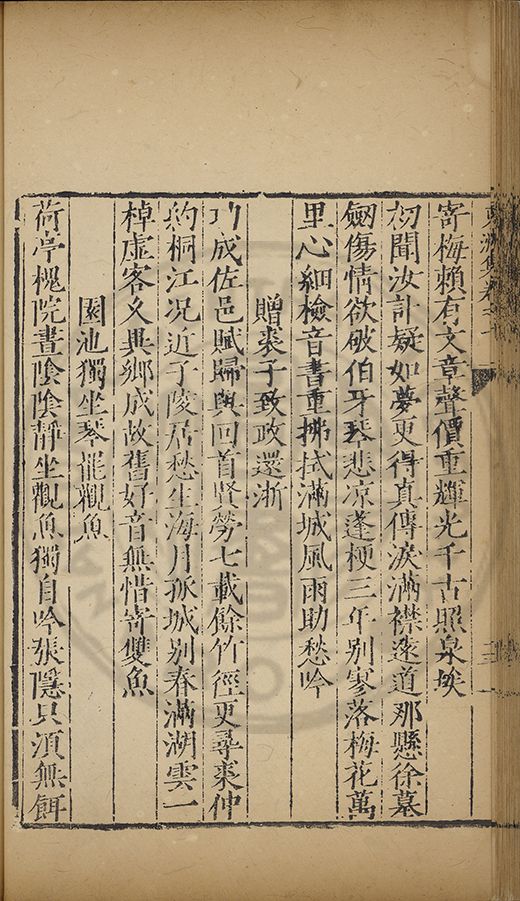 寄梅賴有文章聲價重輝光千古照泉埃
初聞汝訃疑如夢更得真傳淚滿襟遂道那懸徐墓
劒傷情欲破伯牙琴悲凉蓬梗三年別寥落梅花萬
里心細檢音書重拂拭滿城風雨助愁吟
贈裘子致政還浙
功成佐邑賦歸輿回首賢勞七載餘竹徑更尋裘仲
約桐江况近子陵居愁生海月孤城别春滿湖雲一
棹虛客久異鄉成故舊好音無惜寄雙魚
園池獨坐琴罷觀魚
荷亭槐院晝陰陰靜坐觀魚獨自吟張隱只須無餌